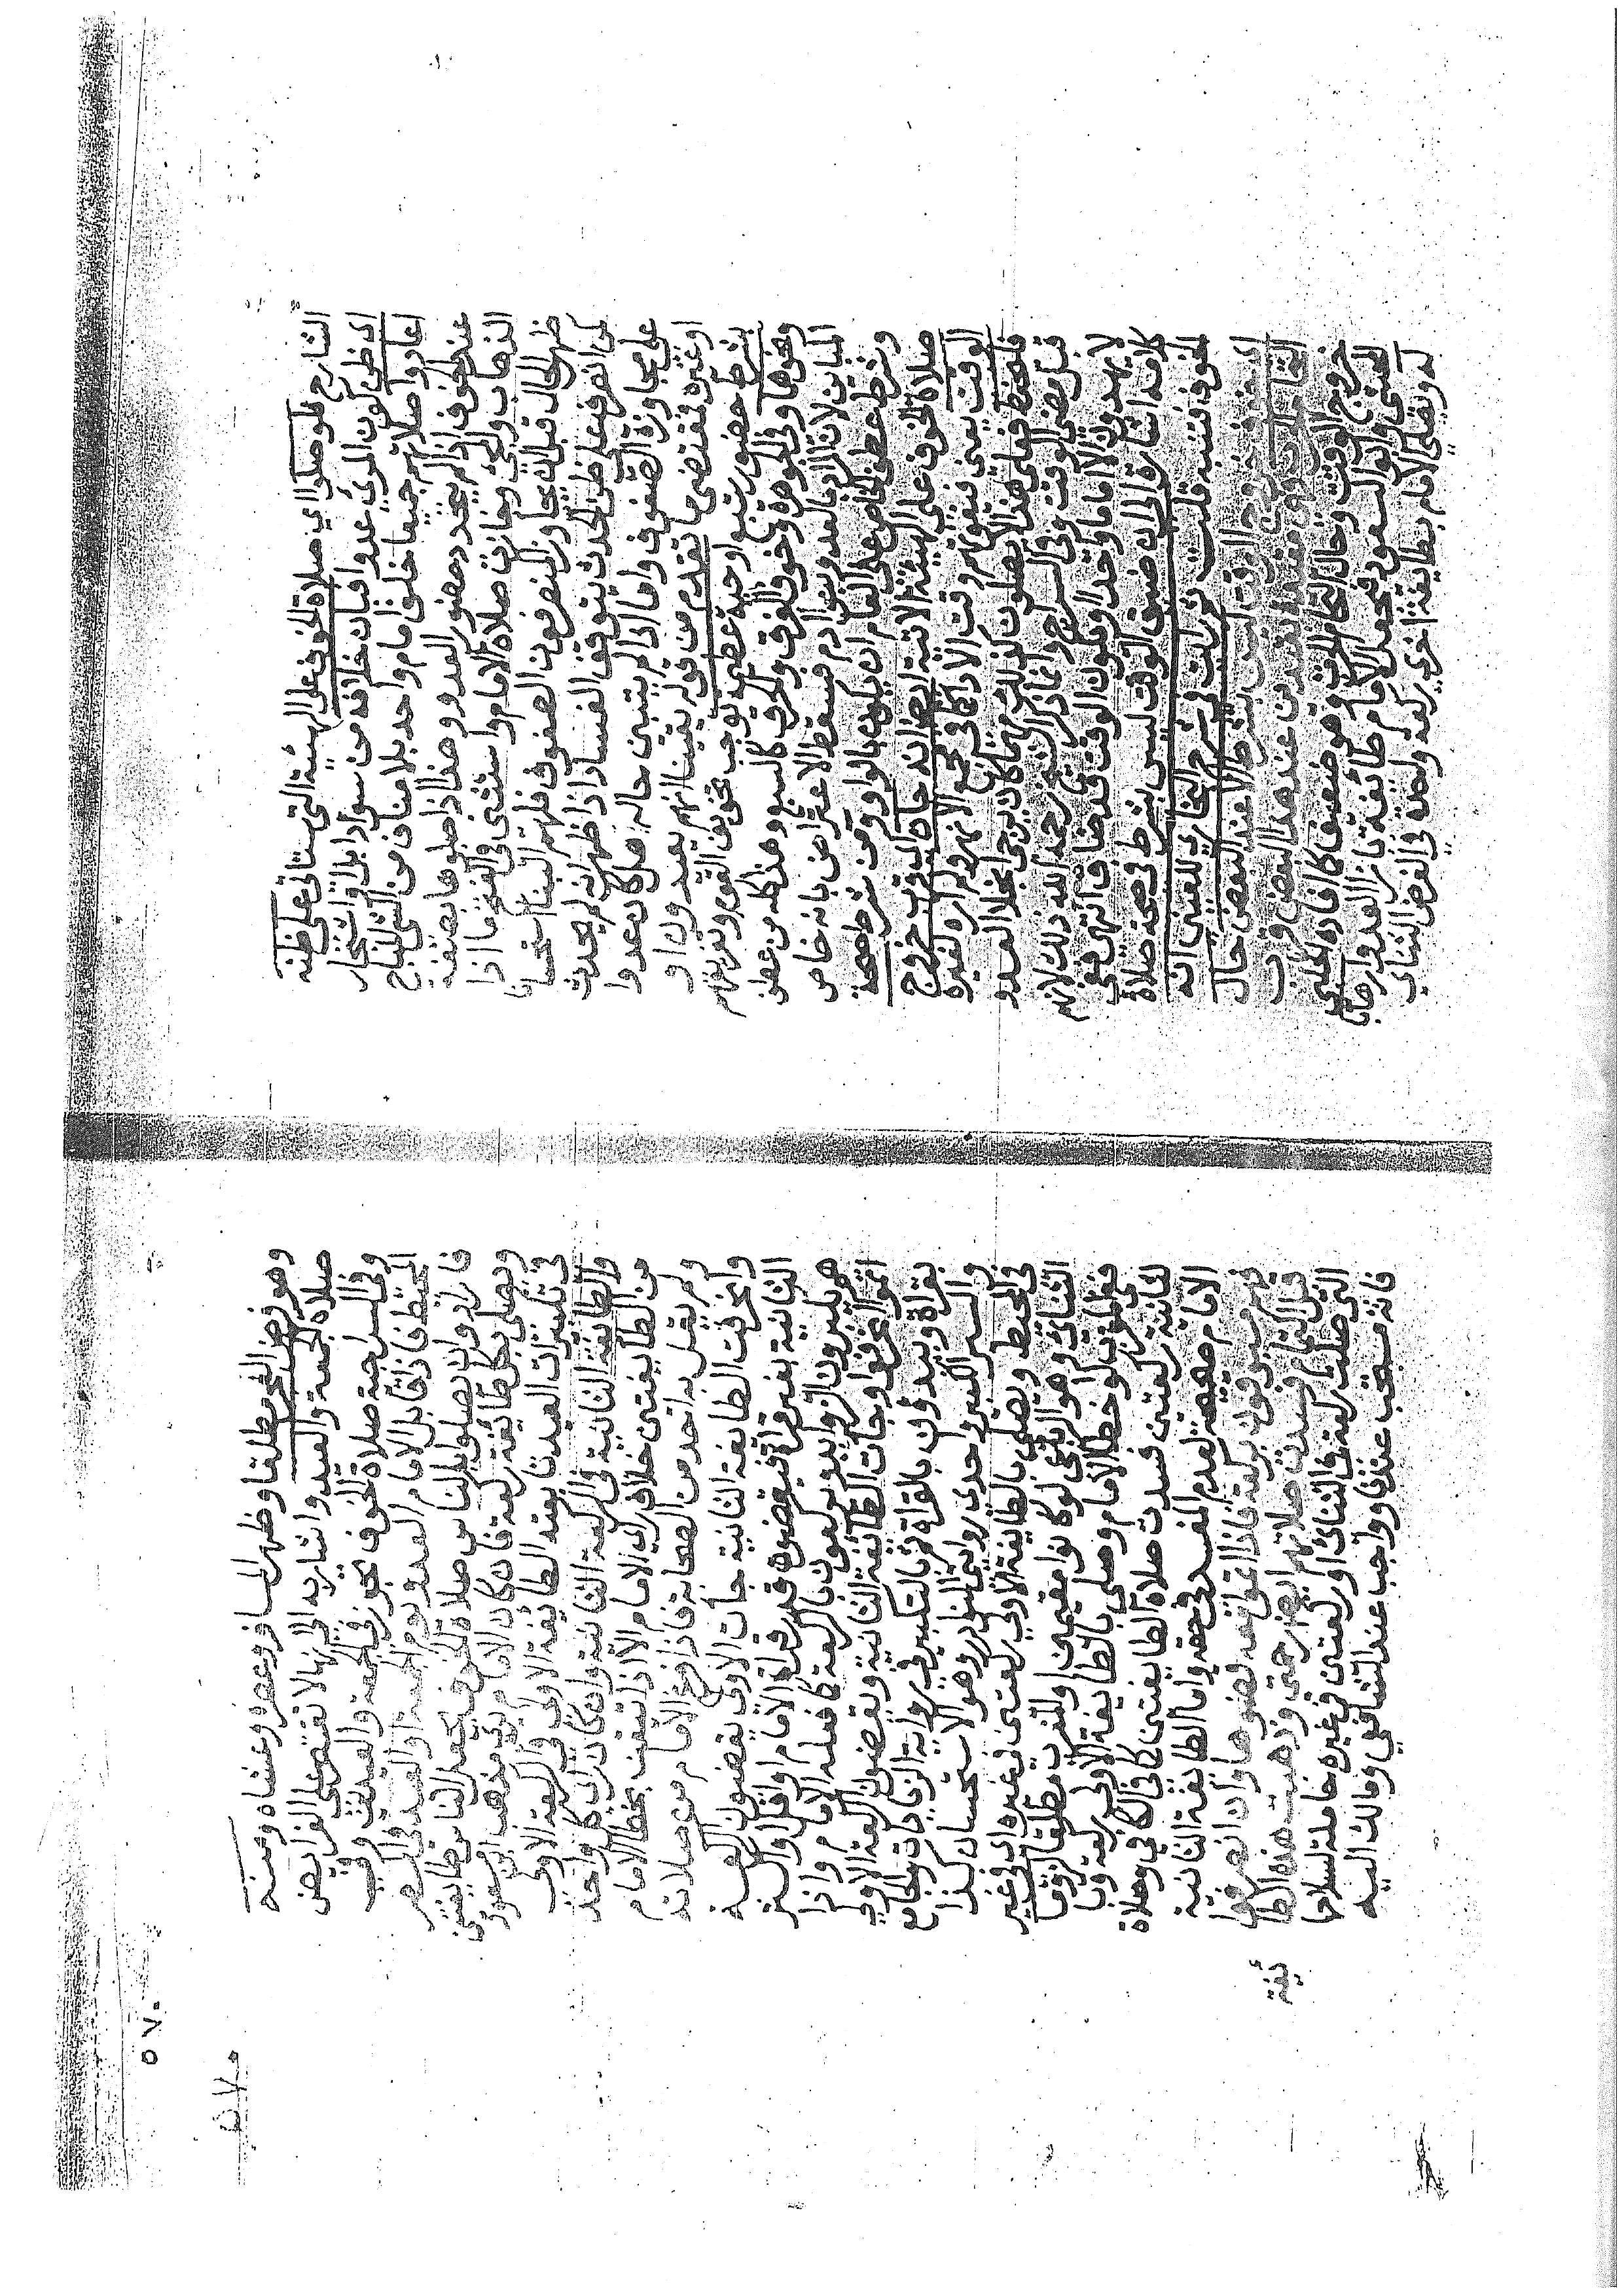 الشارح فلو صلوا اي صلاة الخوف على الهيئة التي ستاتي على ظنه
اي ظن كون المرئي عدوا فبان خلافه من سواد ابل او اشجار
اعادوا صلاتهم جميعا خلف امام واحد بلا مناف من المشي المباح
عند الخوف اذا لم يتجدد حضور العدو وهذا اذا صلوها بصفة
الذهاب والمجئ وجازت صلاة الامام واستثنى في الفتح ما اذا
ظهر الحال قبل ان يجاوز المنصرفون الصفوف فلهم البناء استحسانا
كمن انصرف على ظن الحدث يتوقف الفساد اذا ظهر انه لم يحدث
على مجاوزة الصفوف واما اذا لم يتبين حاله صار كان عدوا
او غيره فمقتضى ما تقدم من قوله يقينا انهم يعيدون او
بشرط حضور سبع او حية عظيمة توجب تخويف القوم وتفزيعهم
ونحوها وفي الجوهرة وخوف الغرق والحرق كالسبع وهذا كله من عطف
المباين لان المراد بالعدو بنوا ادم فسقط الاعتراض بانه خاص
وشرط عطف الخاص على العام ان يكون بالواو ومن شرط صحة
صلاة الخوف على الهيئة الاتية ايضا انه حان اي قرب خروج
الوقت يعني فيتفوتهم وقت الاداء كما في مجمع الانهر ولم اره لغيره
فليحفظ فعلى هذا يصلون كذلك مهما كان يرجى انجلاء العدو
قبل مضي الوقت وفي السراج وانما ذكر الشيخ رحمه الله ذلك لانهم
لا يجدون الا اماما واحدا ويكون الوقت قد ضاق انتهى ففي
كلامه اشارة الى ان ضيق الوقت ليس بشرط في صحة صلاة
الخوف فتنبه قلت ثم رايت في شرح البخاري للعيني انه
اي خوف خروج الوقت ليس بشرط الا عند البعض حال
التحام الحرب فوقته مقيد بقيدين عند هذا البعض قرب
خروج الوقت وحال التحام الحرب وهو ضعيف كما افاده الحلبي
العيني وابو السعود فيجعل الامام طائفة بازاء العدو ارهابا
له ويصلي الامام بطايفة اخرى ركعة واحدة في الفرض الثنائي
وهو فرض الفجر مطلقا وظهر المسافر وعصره وعشاه ومنه
صلاة الجمعة والعيد واشار به الى انها لا تقتصر على الفرايض
وفي السراجية صلاة الخوف تجوز في الجمعة والعيدين وفي
المحيط فاذا قابل الامام العدو يوم الجمعة او العيد في المصر
فارادوا ان يصلوا بالناس صلاة الخوف يجعل الناس طايفتين
ويصلي بكل طائفة ركعة فان كان الامام يرى مذهب ابن مسعود
في تكبيرات العيد تابعته الطائفة الاولى في الركعة الاولى
والطايفة الثانية في الركعة الثانية وان كان راي كل واحد
من الطايفتين خلاف راي الامام الا اذا تيقنت بخطا الامام
ولم يقل به احد من الصحابة فاذا فرغ الامام من صلاته
وانحرفت الطايفة الثانية جات الاولى يقضون الركعة
الثانية بغير قراة فيقومون قدر قراة الامام او اقل او اكثر
ثم يكبرون الزوايد ويركعون بالركعة كما فعله الامام واذا
اتموا انحرفوا وجات الطائفة الثانية ويقضون الركعة الاولى
بقراة ويبدؤن بالقراة ثم بالتكبير في رواية الزيادات والجامع
والسير الكبير واحدى روايتي النوادر وهو الاستحسان كذا
في المحيط ويصلي بالطايفة الاولى ركعتين في غيره اي في غير
الثنائي وهو الرباعي لو كانوا مقيمين والمغرب مطلقا لزوما
ففي المغرب لو اخطا الامام وصلى بالطايفة الاولى ركعة وبا
لثانية ركعتين فسدت صلاة الطايفتين كما في الكافي وصلاة
الامام صحيحة لعدم المفسد في حقه واما الطايفة الثانية
فهم مسبوقون بركعة فاذا اتموا معه قضوها وان انصرفوا
قبل التمام فسدت صلاتهم ايضا حتى وذهبت هذه الطا
ئفة
التي صلت ركعة في الثنائي او ركعتين في غيره حاملة سلاحا
فانه مستحب عندنا وواجب عند الشافعي ومالك اليه
٥٧٠